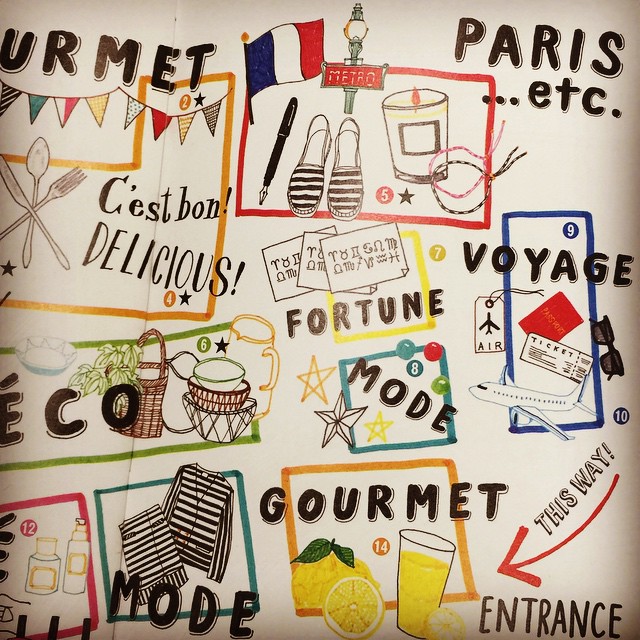 URMET
2
C'est bon!
DELICIOUS!
4
METRO
5
PARIS
...etc.
FORTUNE
7
VOYAGE
9
AIR
PASSPORT
TICKET
10
6
ÉCO
MODE
8
12
MODE
GOURMET
14
THIS WAY!
ENTRANCE